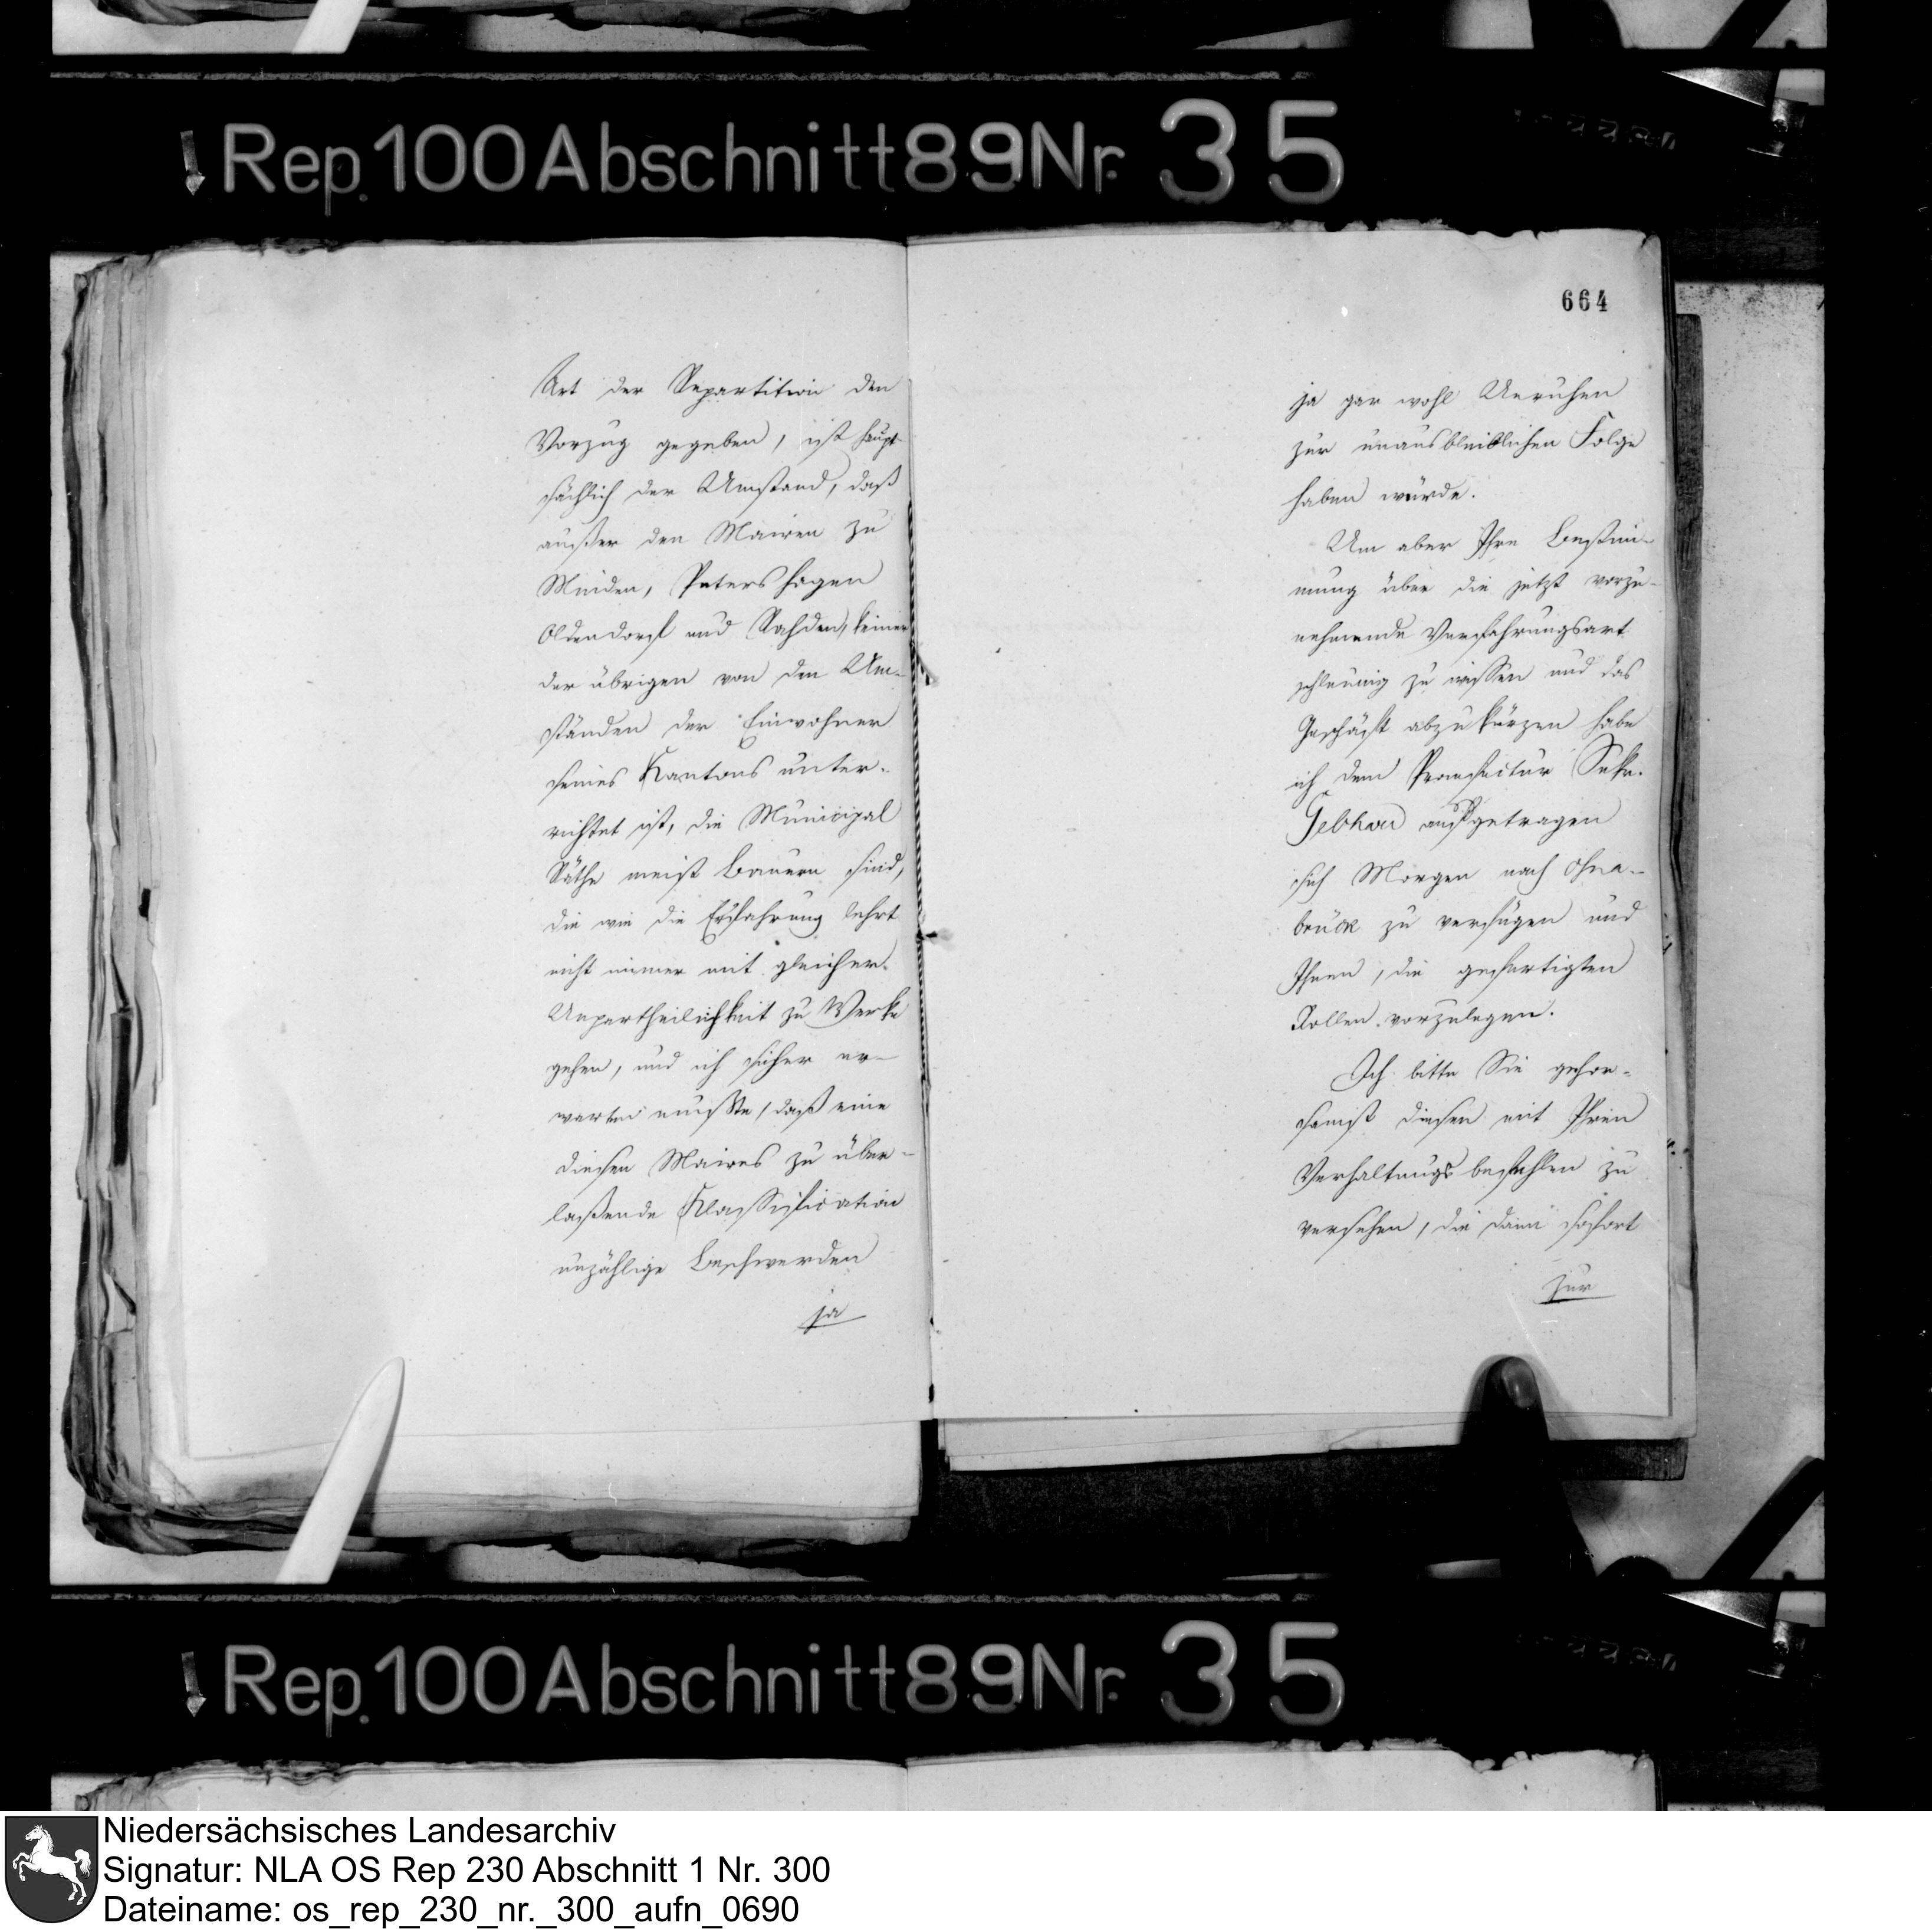 Rep. 100 Abschnitt 89 Nr. 35
Art der Repartition den
Vorzug gegeben, ist haupt-
sächlich der Umstand, daß
außer den Mairen zu
Minden, Petershagen
Oldendorf und Rahden, keiner
der übrigen von den Um-
ständen der Einwohner
seines Kantons unter-
richtet ist, die Municipal
Räthe meist Bauern sind,
die wie die Erfahrung lehrt
nicht immer mit gleicher
Unpartheilichkeit zu Werke
gehen, und ich sicher er-
warten mußte, daß eine
diesen Maires zu über-
laßende Klassification
unzählige Beschwerden
ja
664
ja gar wohl Unruhen
zur unausbleiblichen Folge
haben würde.
Um aber Ihre Bestim-
mung über die jetzt vorzu-
nehmende Verfahrungsart
schleunig zu wissen und das
Geschäft abzukürzen habe
ich dem Praefectur Sekr.
aufgetragen
sich Morgen nach Osna-
brück zu verfügen und
Ihnen, die gefertigten
Rollen vorzulegen.
Ich bitte Sie gehor-
samst diesen mit Ihren
Verhaltungsbefehlen zu
versehen, die dann sofort
zur
Rep. 100 Abschnitt 89 Nr. 35
Niedersächsisches Landesarchiv
Signatur: NLA OS Rep 230 Abschnitt 1 Nr. 300
Dateiname: os_rep_230_nr._300_aufn_0690